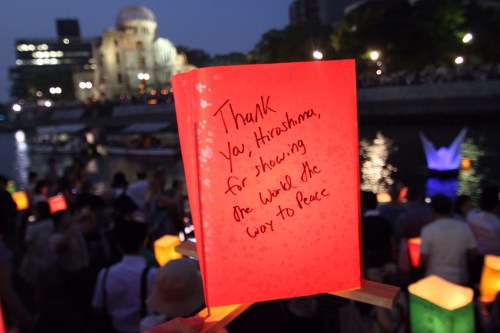 Thank
You, Hiroshima,
for showing
the World the
way to Peace